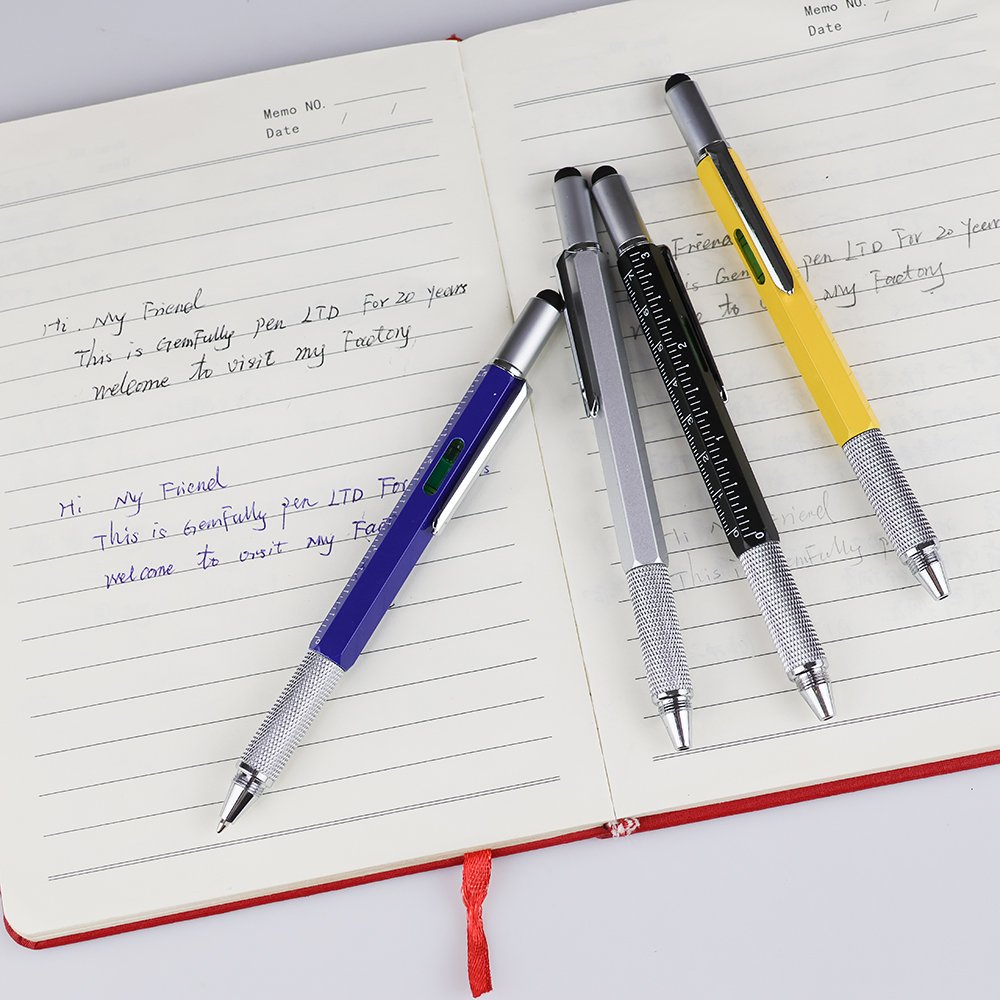 Memo NO.
Date / /
Hi. My Friend
This is Gemfully pen LTD For 20 years
welcome to visit my Factory
Hi My Friend
This is Gemfully pen LTD For
welcome to visit my Fac
Memo NO.
Date / /
Friend
is Gem pen LTD For 20 Years
to my Factory
Hi My Friend
This is Gemfully
3
2
0